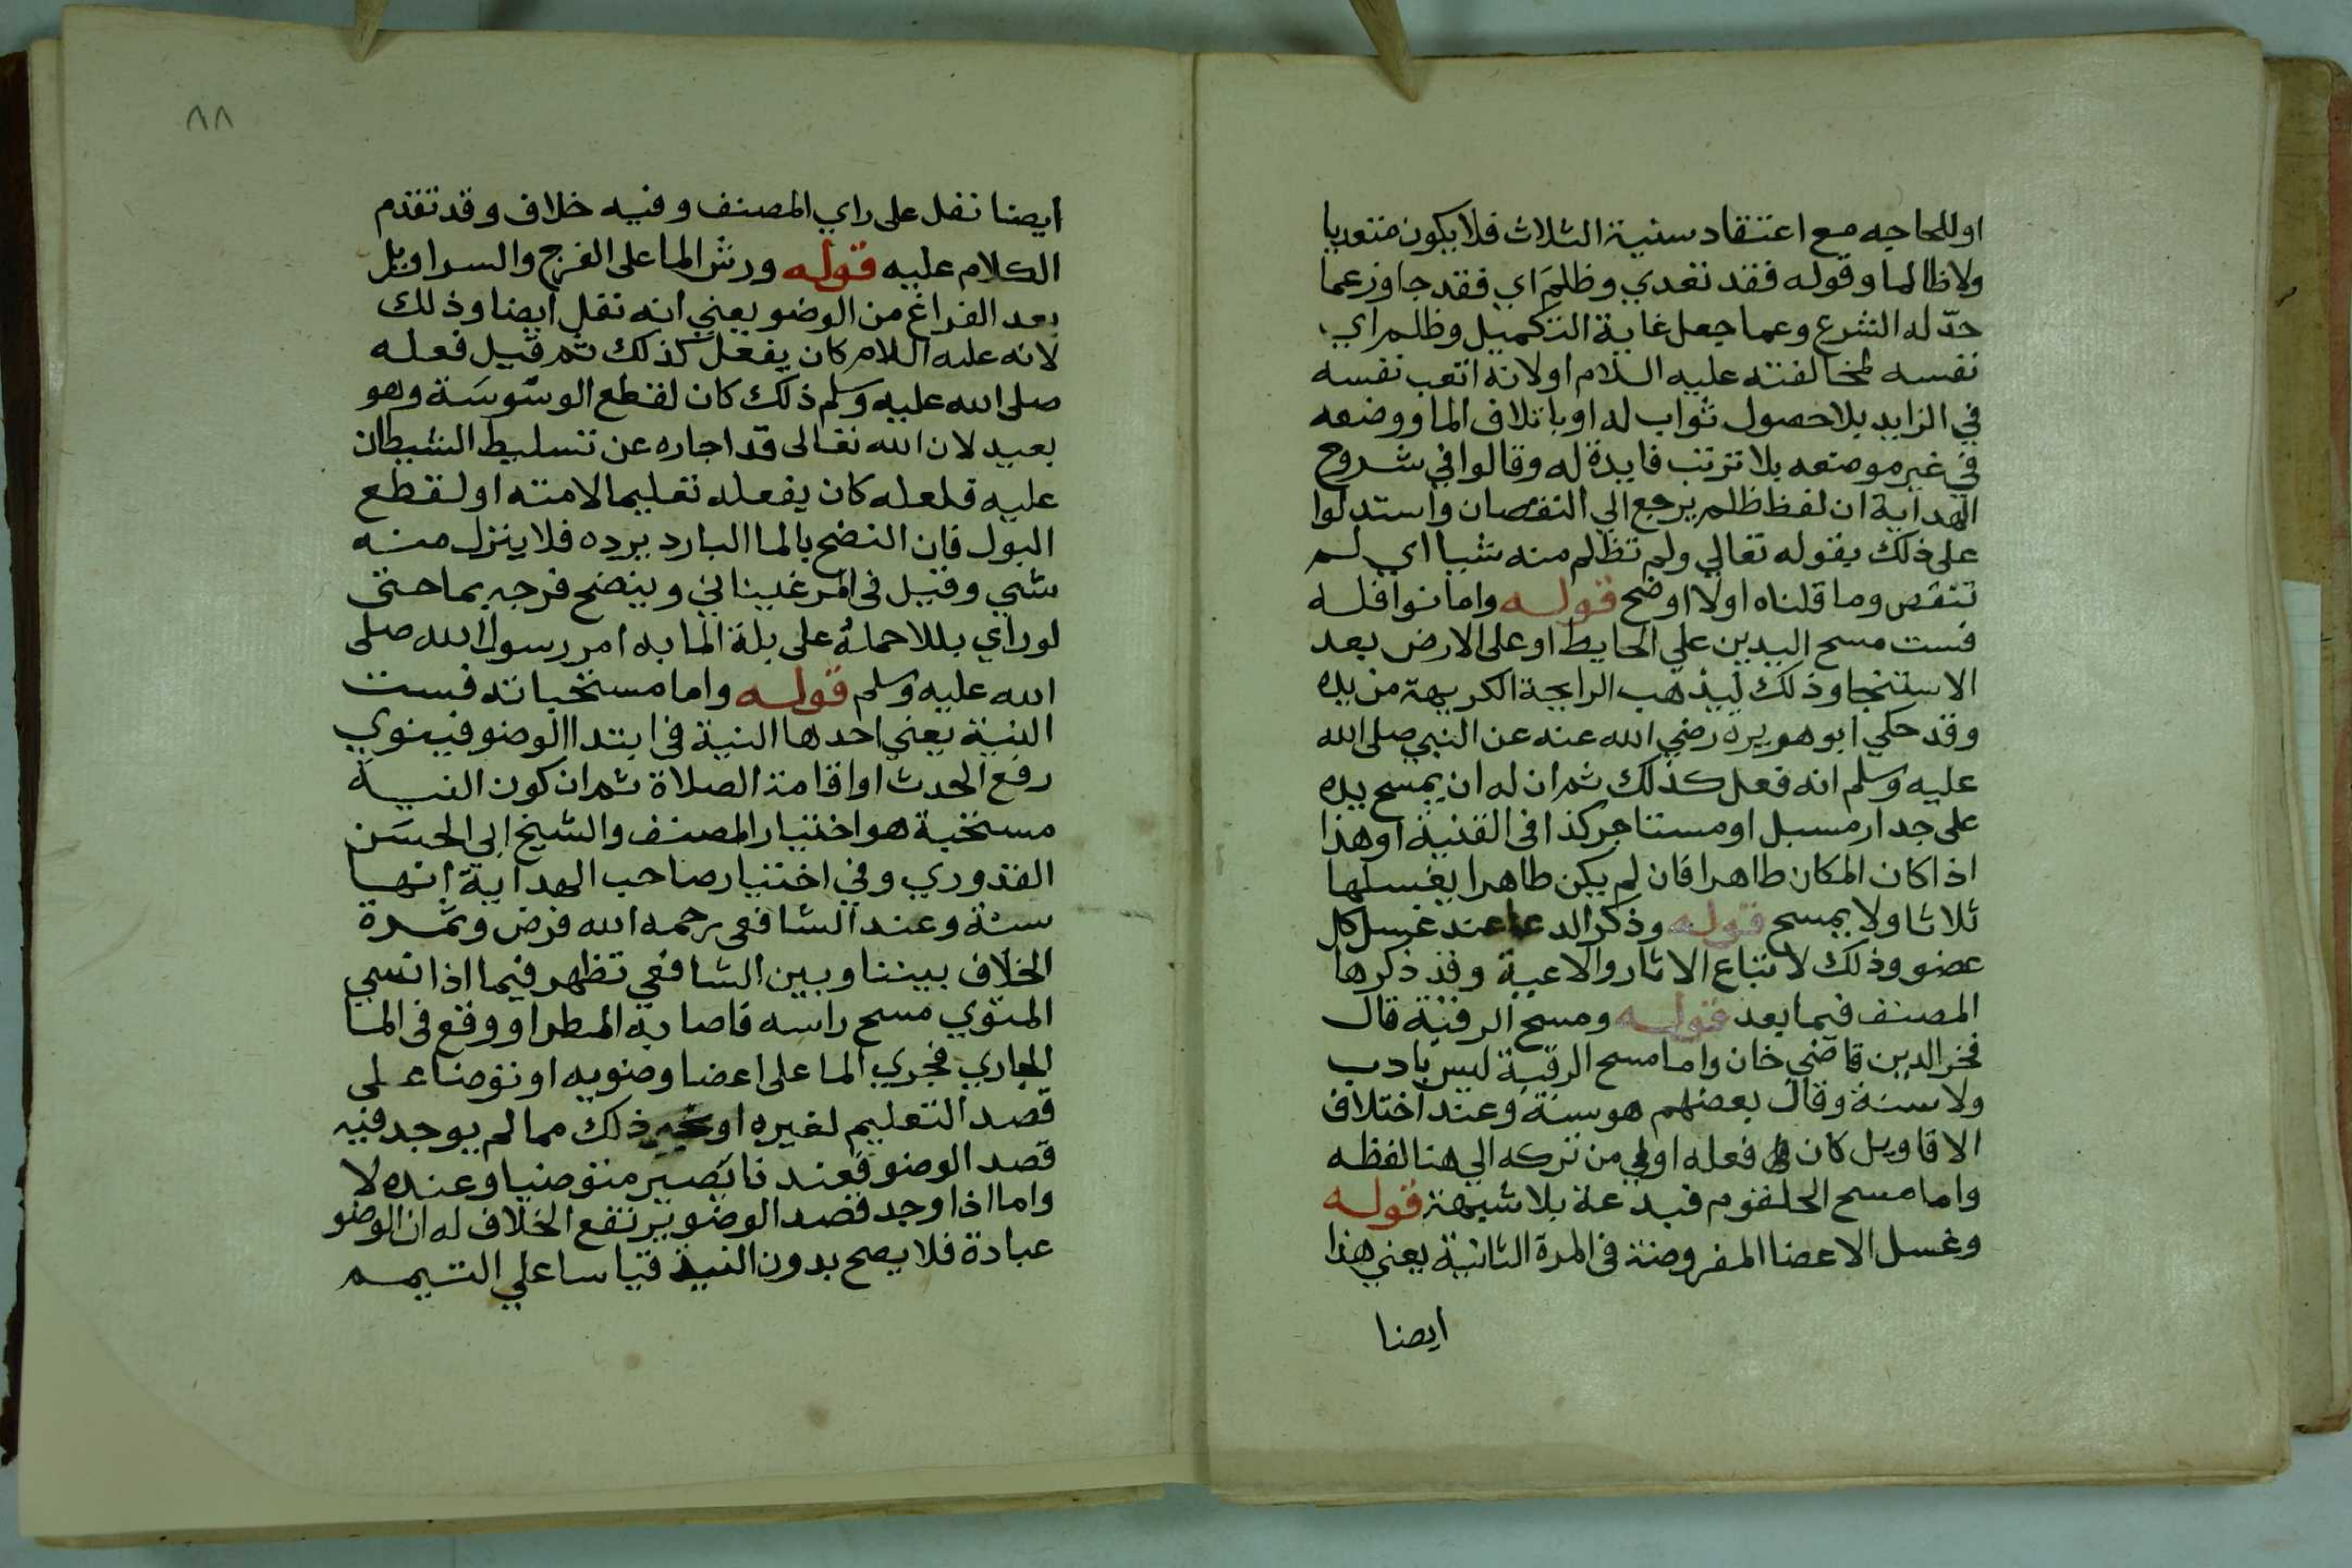 او للحاجه مع اعتقاد سنية الثلاث فلا يكون متعديا
ولا ظالما وقوله فقد تعدي وظلم اي فقد جاوز عما
حدّ له الشرع وعما جعل غاية التكميل وظلم اي
نفسه لمخالفته عليه السلام او لانه اتعب نفسه
في الزايد بلا حصول ثواب له او باتلاف الما ووضعه
في غير موضعه بلا ترتب فايدة له وقالوا في شروح
الهداية ان لفظ ظلم يرجع الي النقصان واستدلوا
على ذلك بقوله تعالي ولم تظلم منه شيا اي لم
تنقص وما قلناه اولا اوضح قوله واما نوافله
فست مسح اليدين علي الحايط او على الارض بعد
الاستنجا وذلك ليذهب الرايحة الكريهة من يده
وقد حكي ابو هويرة رضي الله عنه عن النبي صلى الله
عليه وسلم انه فعل كذلك ثم ان له ان يمسح يده
على جدار مسبل او مستاجر كذا في القنية او هذا
اذا كان المكان طاهرا فان لم يكن طاهرا يغسلها
ثلاثا ولا يمسح قوله وذكر الدعا عند غسل كل
عضو وذلك لاتباع الاثار والاعية وقد ذكرها
المصنف فيما بعد قوله ومسح الرقبة قال
فخر الدين قاضي خان واما مسح الرقبة ليس بادب
ولا سنة وقال بعضهم هو سنة وعند اختلاف
الاقاويل كان فعله اولي من تركه الي هنا لفظه
واما مسح الحلقوم فبدعة بلا شبهة قوله
وغسل الاعضا المفروضة في المرة الثانية يعني هذا
ايضا
٨٨
ايضا نفل على راي المصنف وفيه خلاف وقد تقدم
الكلام عليه قوله ورش الما على الفرج والسراويل
بعد الفراغ من الوضو يعني انه نفل ايضا وذلك
لانه عليه السلام كان يفعل كذلك ثم قيل فعله
صلى الله عليه وسلم ذلك كان لقطع الوسوسة وهو
بعيد لان الله تعالى قد اجاره عن تسليط الشيطان
عليه فلعله كان يفعله تعليما لامته او لقطع
البول فان النضح بالما البارد يرده فلا ينزل منه
شي وقيل في المرغيناني وينضح فرجه بما حتى
لو راي بللا حمله على بلة الما به امر رسول الله صلى
الله عليه وسلم قوله واما مستحباته فست
النية يعني احدها النية في ابتدا الوضو فينوي
رفع الحدث او اقامة الصلاة ثم ان كون النية
مستحبة هو اختيار المصنف والشيخ ابي الحسن
القدوري وفي اختيار صاحب الهداية انها
سنة وعند الشافعي رحمه الله فرض وثمرة
الخلاف بيننا وبين الشافعي تظهر فيما اذا نسي
المتوي مسح راسه فاصابه المطر او وقع في الما
الجاري فجري الما على اعضا وضويه او توضا على
قصد التعليم لغيره او غير ذلك مما لم يوجد فيه
قصد الوضو فعندنا يصير متوضيا وعنده لا
واما اذا وجد قصد الوضو يرتفع الخلاف له ان الوضو
عبادة فلا يصح بدون النية قياسا علي التيمم